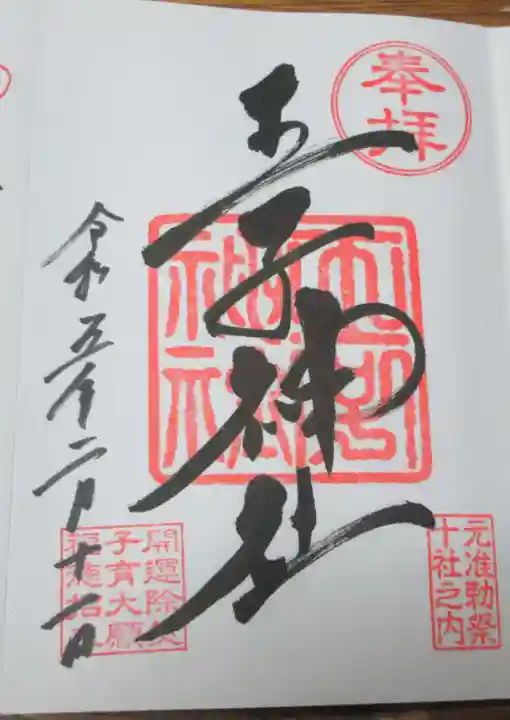 奉拝
元准勅祭
十社之内
王子神社
開運除災
子育大願
令和五年二月十一日